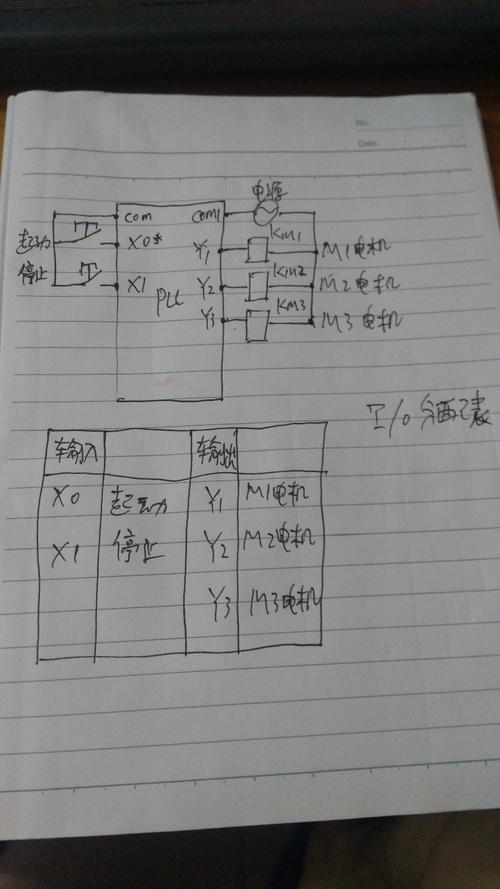 No.
Date.
电源
com com1
起动 X0 Y1 KM1 M1电机
停止 X1 Y2 KM2 M2电机
PLC Y3 KM3 M3电机
I/O分配表
输入 输出
X0 起动 Y1 M1电机
X1 停止 Y2 M2电机
Y3 M3电机